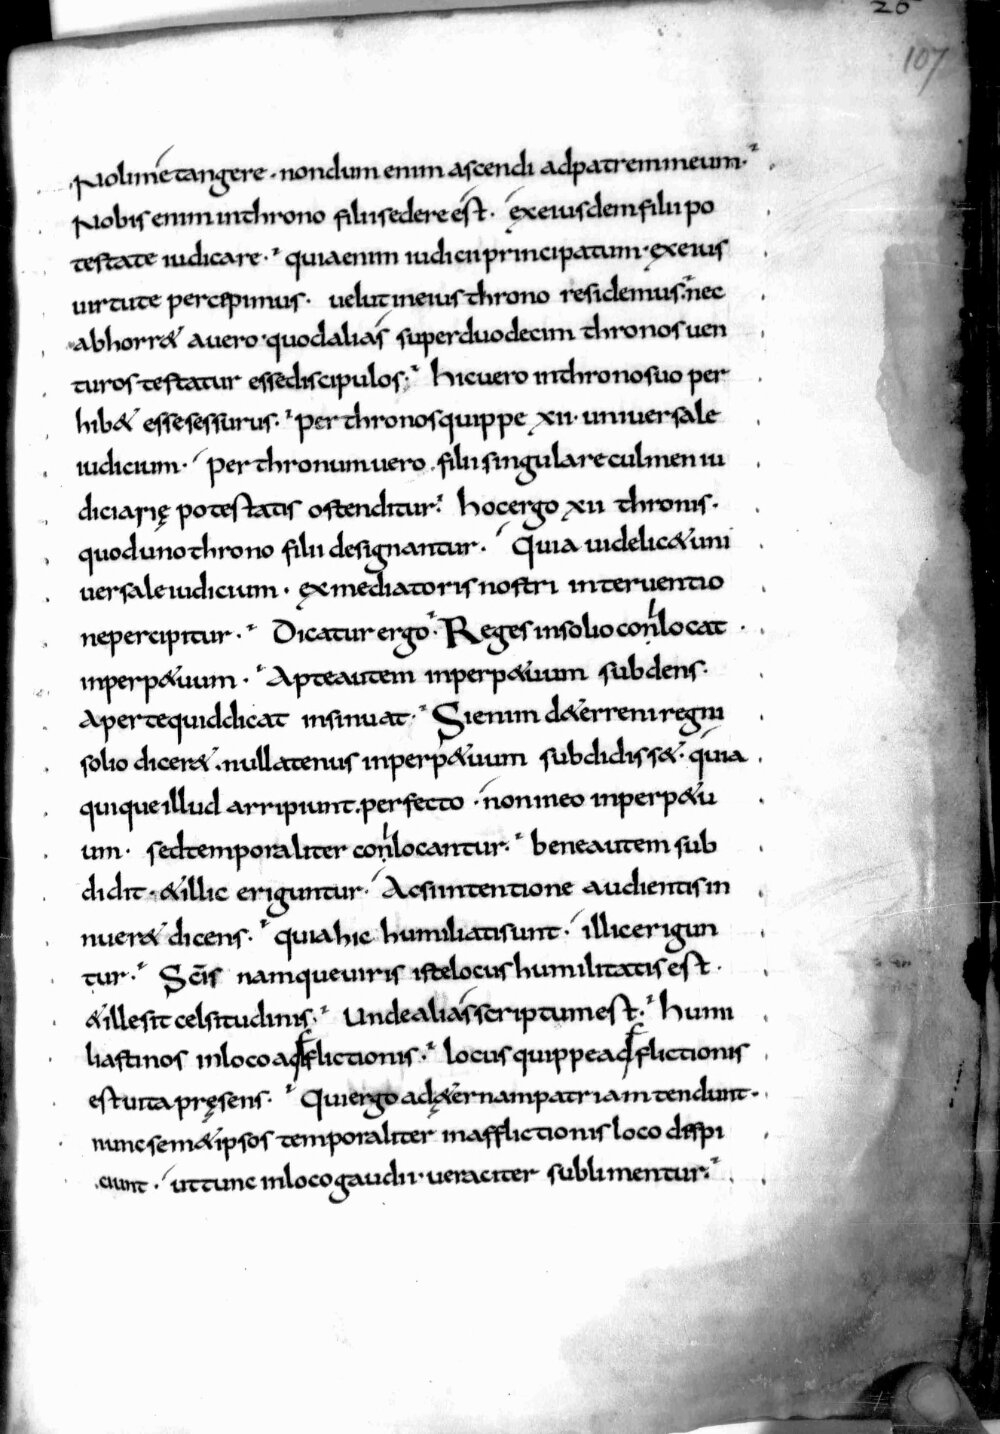 20
107
Nolimetangere · nondum enim ascendi adpatremmeum·
Nobis enim inthrono filii sedere est · exeiusdem filii po
testate iudicare · quiaenim iudicii principatum · exeius
uirtute percipimus · uelut ineius throno residemus · nec
abhorr& auero · quodalias superduodecim thronos uen
turos testatur esse discipulos · hicuero inthronosuo per
hib& esse sessurus · Per thronos quippe xii · uniuersale
iudicium · per thronum uero · filii singulare culmen iu
diciarię potestatis ostenditur · hocergo xii thronis ·
quod uno throno filii designantur · Quia uidelic& uni
uersale iudicium · exmediatoris nostri interuentio
nepercipitur · Dicatur ergo · Reges insolio conlocat ·
inperp&uum · Apteautem inperp&uum subdens ·
Apertequid dicat insinuat · Sienim d&erreni regni
solio dicer& · nullatenus inperp&uum subdidiss& · quia
quique illud arripiunt · perfecto · non in eo inperp&u
um · sed temporaliter conlocantur · bene autem sub
didit · &illic eriguntur · Acsi intentione audientis in
nuer& dicens · quia hic humiliati sunt · illic erigun
tur · Scīs namque uiris iste locus humilitatis est ·
&ille sit celsitudinis · Unde alias scriptum est · humi
liasti nos inloco adflictionis · locus quippe adflictionis
est uita pręsens · Qui ergo adę&ernam patriam tendunt ·
nunc sem&ipsos temporaliter inafflictionis loco despi
ciunt · uttunc inloco gaudii · ueraciter sublimentur ·